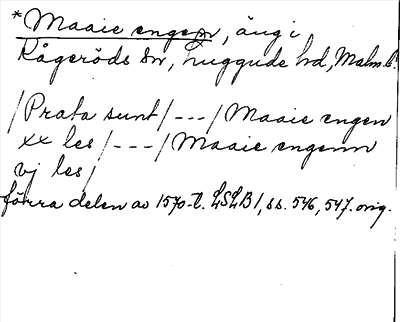 *Maaie engen, äng i
Kågeröds sn, Luggude hd, Malm. l.
/Prata sunt/---/Maaie engen
xx les/---/Maaie engenn
vj les/
förra delen av 1570-t. LSLB 1, ss. 546, 547. orig.